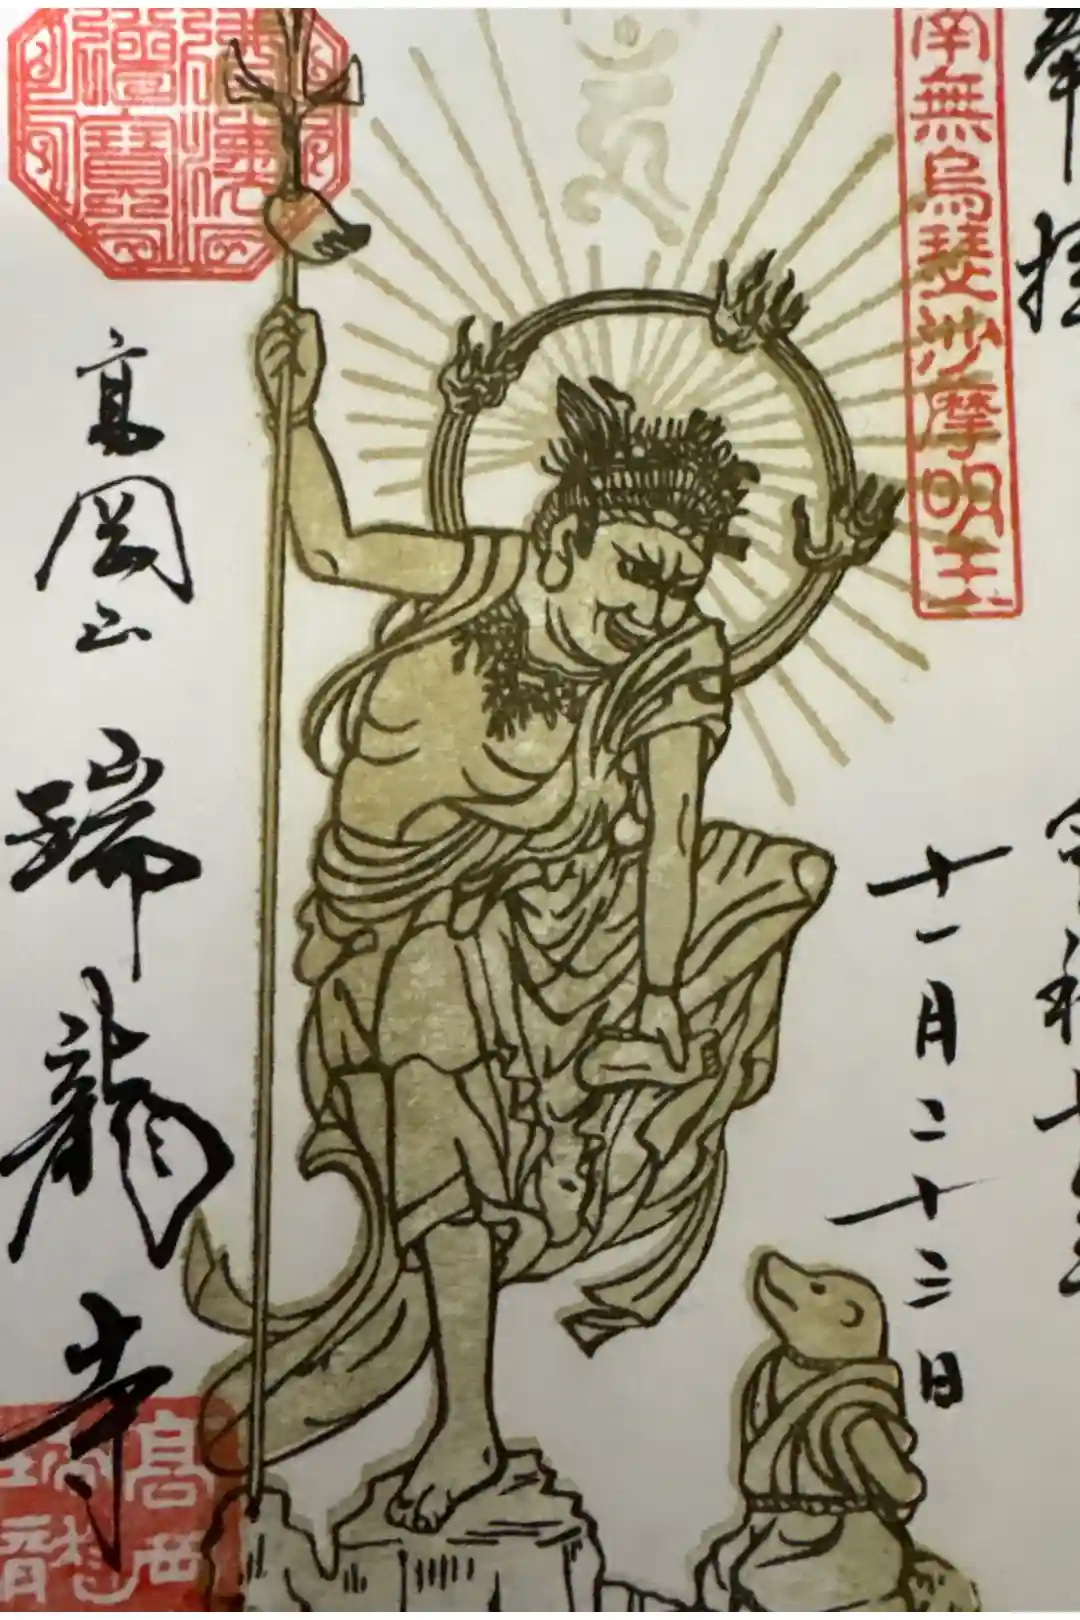 奉拝
令和七年
南無烏瑟沙摩明王
十一月二十三日
佛法僧寶
高岡山
瑞龍寺